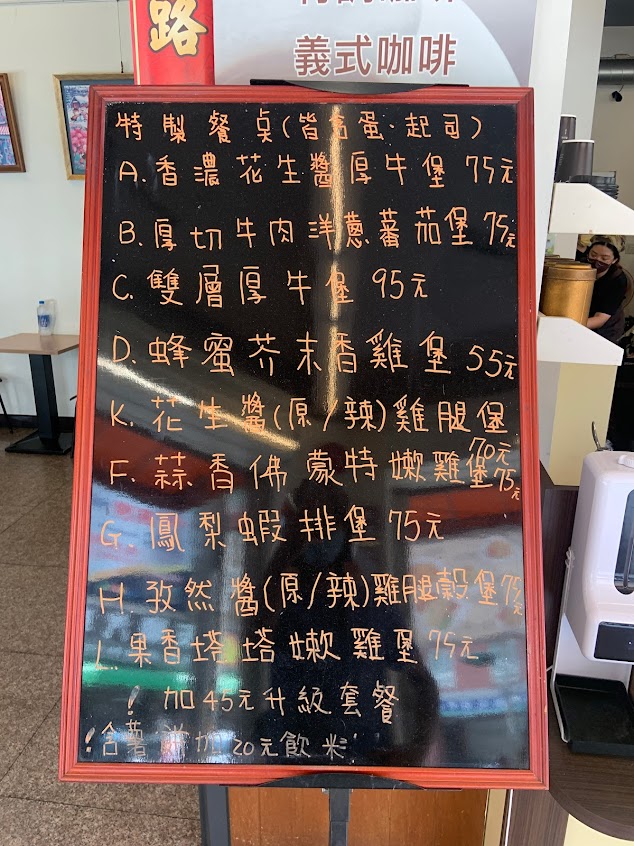 路
義式咖啡
特製餐桌(皆含蛋.起司)
A.香濃花生醬厚牛堡 75元
B.厚切牛肉洋蔥蕃茄堡 75元
C.雙層厚牛堡 95元
D.蜂蜜芥末香雞堡 55元
K.花生醬(原/辣)雞腿堡
70元
F.蒜香佛蒙特嫩雞堡 75元
G.鳳梨蝦排堡 75元
H.孜然醬(原/辣)雞腿穀堡 75元
L.果香塔塔嫩雞堡 75元
! 加45元升級套餐
!含薯 加20元飲